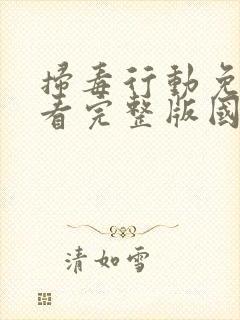 掃毒行動免
看完整版國
清如雪